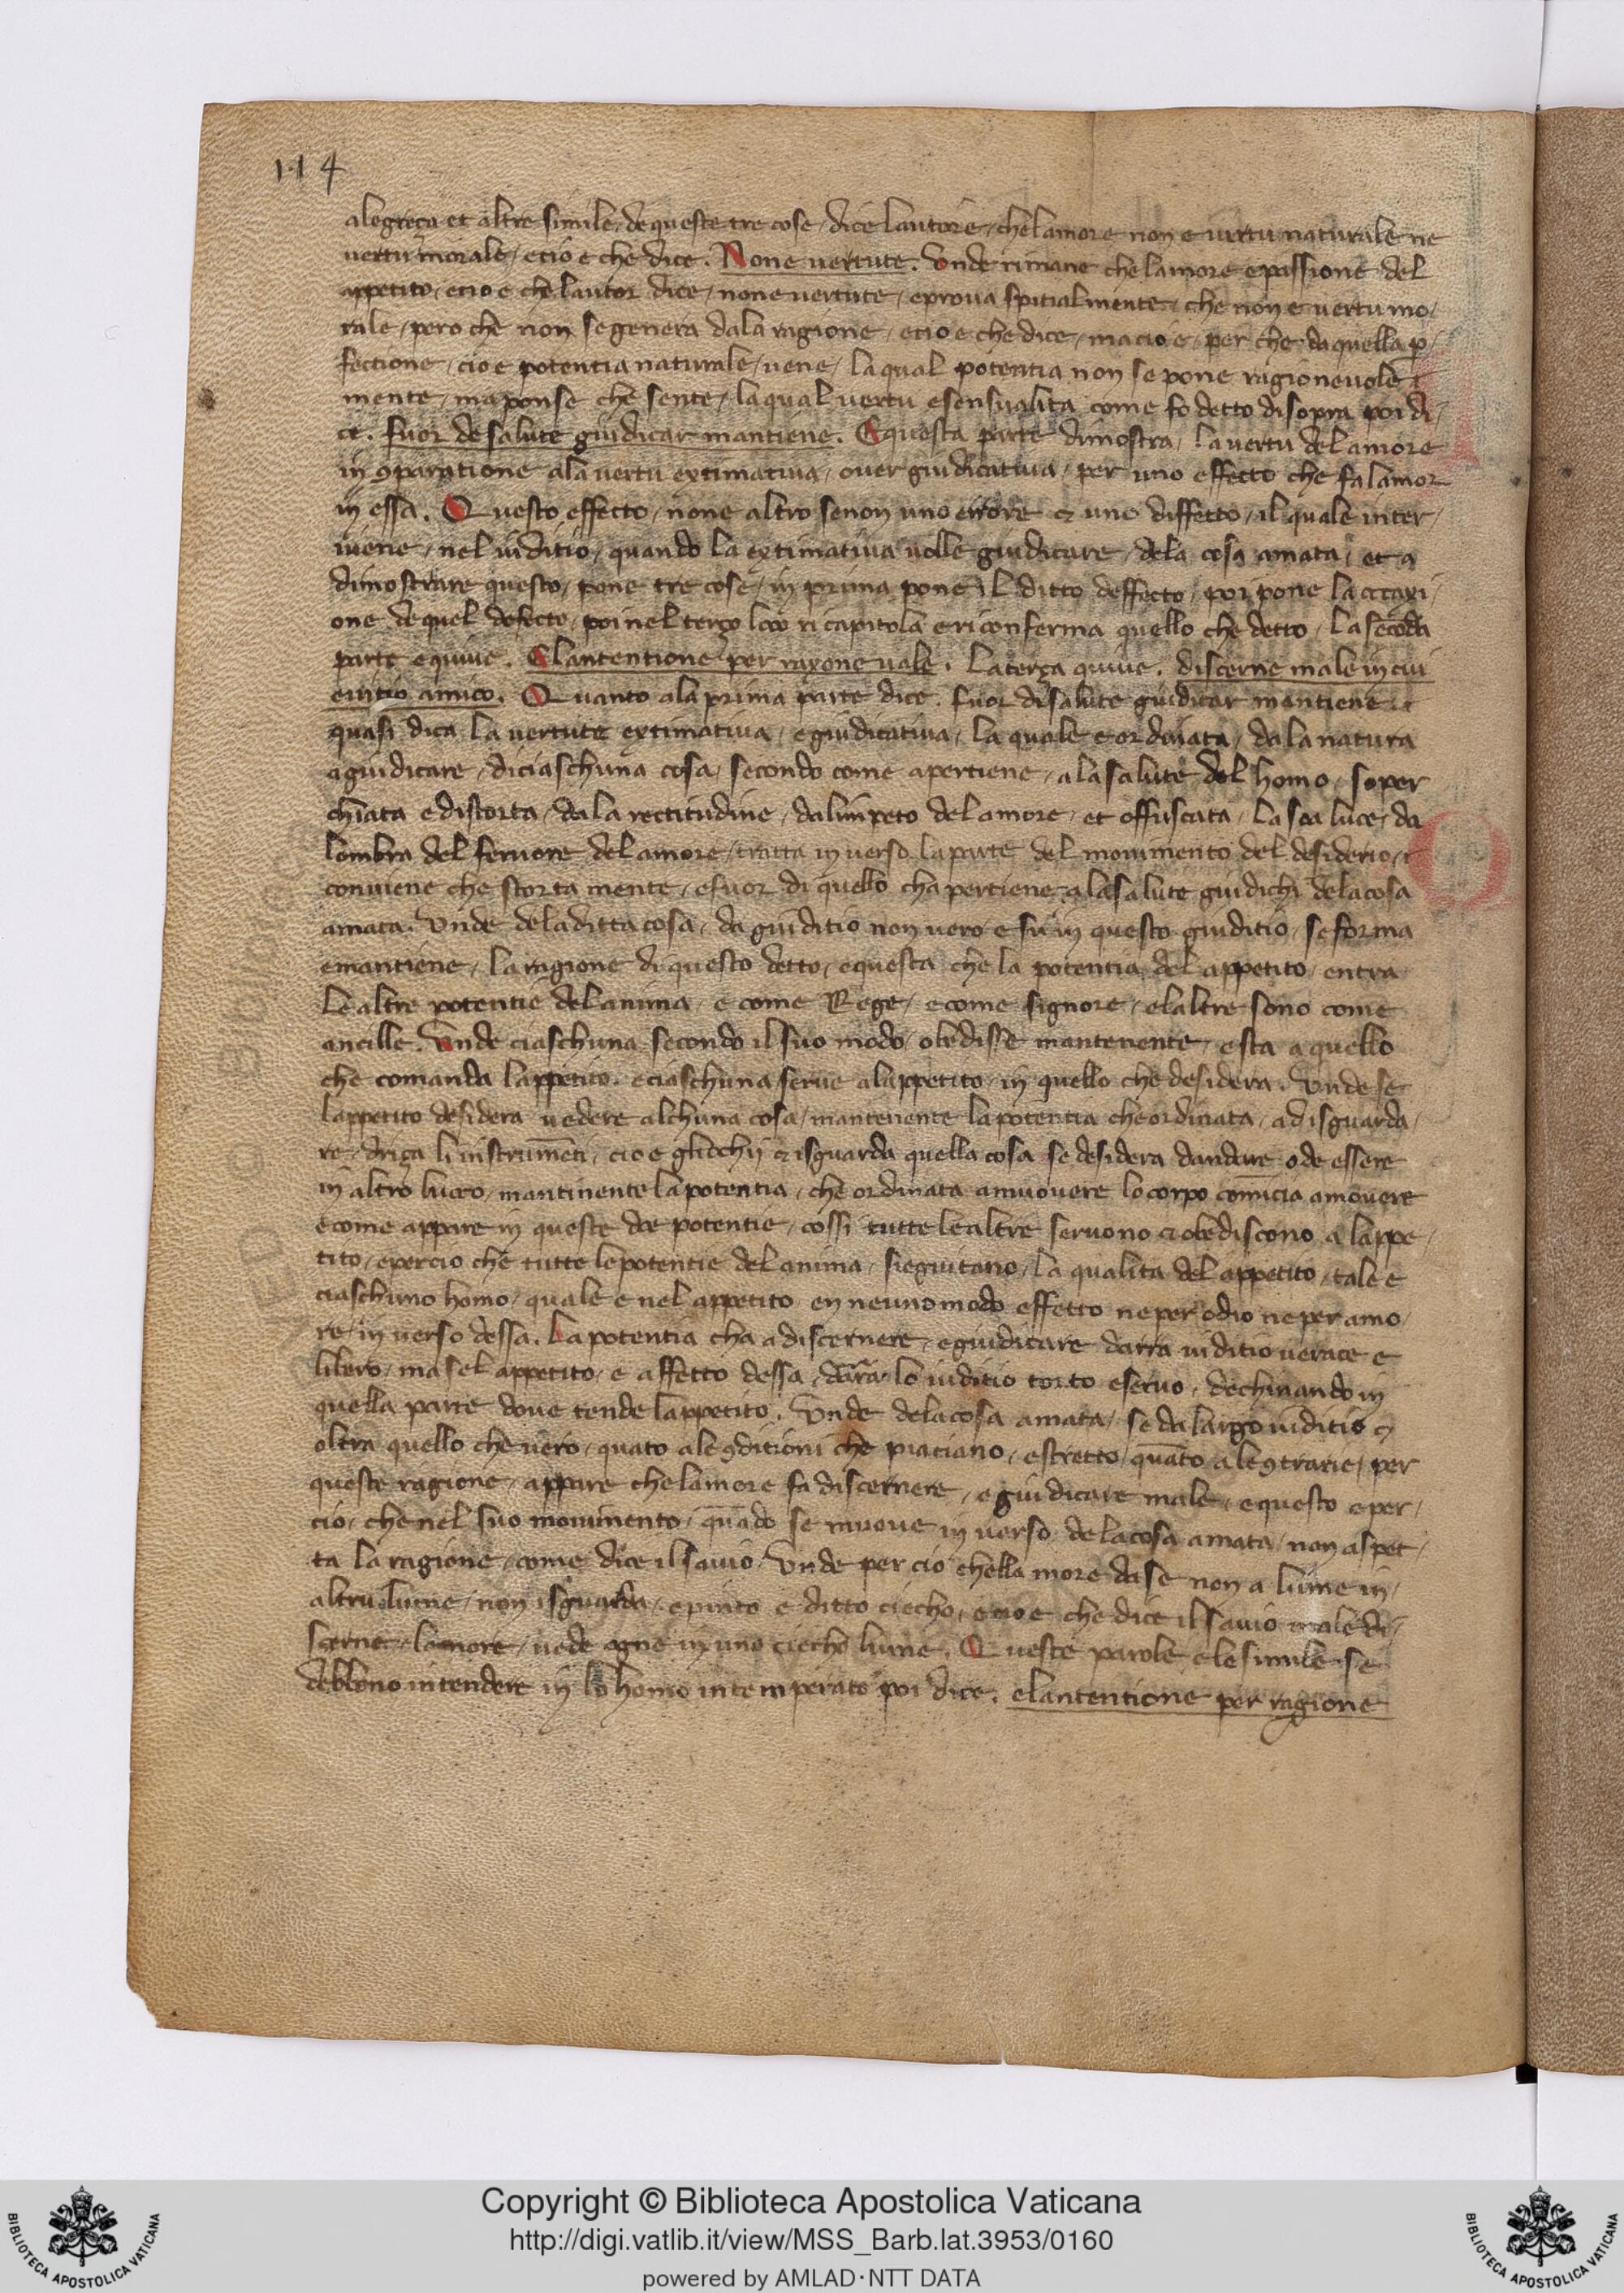 114
alegreça et altre simile, de queste tre cose, dice lautore, chelamore non e uertu naturale ne
uertu morale, ecio e che dice. None uertute. Vnde rimane che lamore epassione del
appetito, ecio e che lautor dice, none uertute, eproua spitialmente, che non e uertu mo,
rale, pero che non segenera dala ragione, ecio e che dice, macio e, per che da quella p̱,
fectione, cio e potentia naturale, uene, la qual potentia non se pone ragioneuole,
mente, maponse che sente, laqual uertu esensualita come fo detto disopra poi di,
ce. fuor desalute giudicar mantiene. Equesta parte dimostra, la uertu delamore
in ꝯparatione ala uertu extimatiua, ouer giudicatiua, per uno effecto che falamor
in essa. Questo effecto, none altro senon uno errore & uno diffetto, il quale inter,
uiene, nel iuditio, quando la extimatiua uolle giudicare, dela cosa amata, et a
dimostrare questo, pone tre cose, in prima pone il ditto deffecto, poi pone la
one de quel defecto, poi nel terço loco ricapitola e riconferma quello che detto, La secōda
parte equiue. Elantentione per raxone uale. Laterça quiue. discerne male in cui
euitio amico. Quanto ala prima parte dice. fuor disalute giudicar mantiene.
quasi dica la uertute extimatiua, egiudicatiua, la quale e ordinata, dala natura
agiudicare, diciaschuna cosa, secondo come apertiene, alasalute del homo, soper
chiata edistorta, dala rectitudine, dalimpeto delamore, et offuscata, la sca luce, da
lombra del feruore delamore, tratta in uerso laparte del mouimento del desiderio,
conuiene che stortamente, efuor di quello chapertiene alasalute giudichi delacosa
amata. Vnde deladitta cosa, da giuditio non uero e su in questo giuditio, se forma
emantiene, la ragione di questo detto, equesta che la potentia del appetito, entra
le altre potentie delanima, e come Rege, ecome signore, elaltre sono come
ancille. Vnde ciaschuna secondo il suo modo, obedisse mantenente, esta a quello
che comanda lappetito. eciaschuna serue alappetito, in quello che desidera. Vnde se
lappetito desidera uedere alchuna cosa, mantenente lapotentia cheordinata, adisguarda,
re, driça li instrumēti, cio e gliochij & isguarda quella cosa se desidera dandare o de essere
in altro luoco, mantinente lapotentia, che ordinata amuouere lo corpo comīcia amouere
ecome appare in queste doe potentie, cossi tutte lealtre seruono & obediscono alappe,
tito, epercio che tutte lepotentie delanima, sieguitano, la qualita del appetito, tale e
ciaschuno homo, quale e nel appetito en neuno modo effetto ne per odio ne per amo,
re, in uerso dessa. La potentia cha a discernere, egiudicare darra iuditio uerace e
libero, masel appetito, e affetto dessa, darra lo iuditio torto eseruo, dechinando in
quella parte doue tende lappetito. Vnde delacosa amata, se da largo iuditio &
oltra quello che uero, quato ale ꝯditioni che piaciano, estretto, quāto ale ꝯtrarie, per
queste ragione, appare chelamore fa discernere, egiudicare male, equesto e per,
cio, che nel suo mouimento, quādo se muoue in uerso delacosa amata, non aspet,
ta la ragione, come dice il sauio. Vnde per cio chella more dase non a lume in,
altrui lume, non isguarda, epinto e ditto ciecho, ecio e che dice il sauio male di,
scerne lamore, uede ogne in uno ciecho lume. Queste parole ele simile se
debbono intendere in lo homo intemperato poi dice. elantentione per ragione
Copyright © Biblioteca Apostolica Vaticana
http://digi.vatlib.it/view/MSS_Barb.lat.3953/0160
powered by AMLAD·NTT DATA
BIBLIOTECA APOSTOLICA VATICANA
BIBLIOTECA APOSTOLICA VATICANA